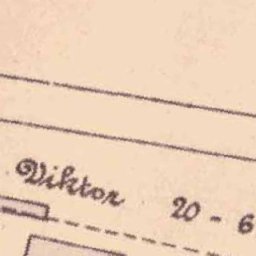 Viktor 20-6